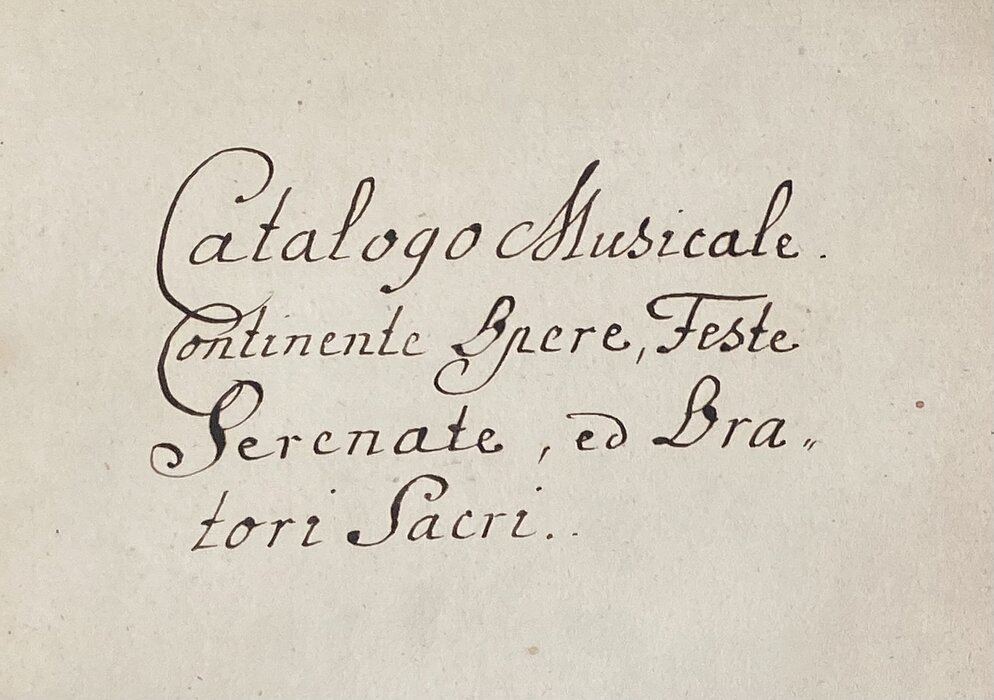 Catalogo Musicale.
Continente Opere, Feste
Serenate, ed Ora„
tori Sacri..